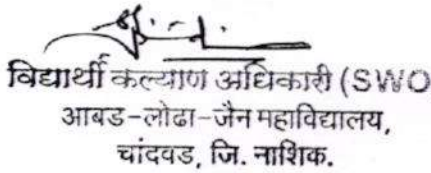 विद्यार्थी कल्याण अधिकारी (SWO
आबड-लोढा-जैन महाविद्यालय,
चांदवड, जि. नाशिक.